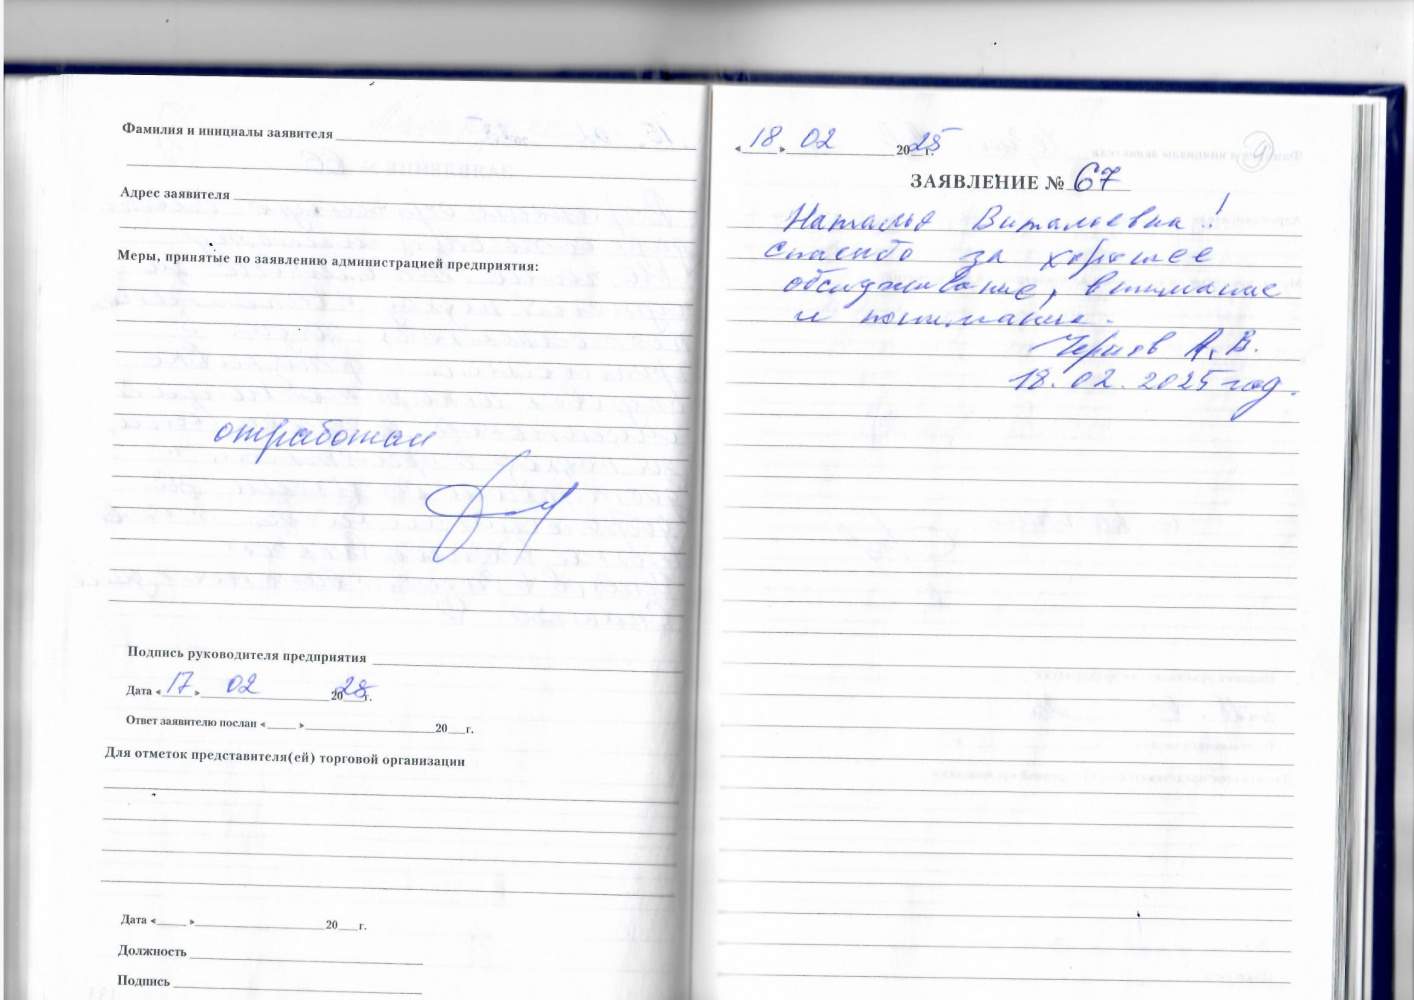 Фамилия и инициалы заявителя
Адрес заявителя
Меры, принятые по заявлению администрацией предприятия:
отработан
Подпись руководителя предприятия
Дата « 17 » 02 2025 г.
Ответ заявителю послан « » 20 г.
Для отметок представителя(ей) торговой организации
Дата « » 20 г.
Должность
Подпись
« 18 » 02 2025 г.
ЗАЯВЛЕНИЕ № 67
Наталья Витальевна!
спасибо за хорошее
обслуживание, внимание
и понимание.
Чернов А. В.
18.02.2025 год.